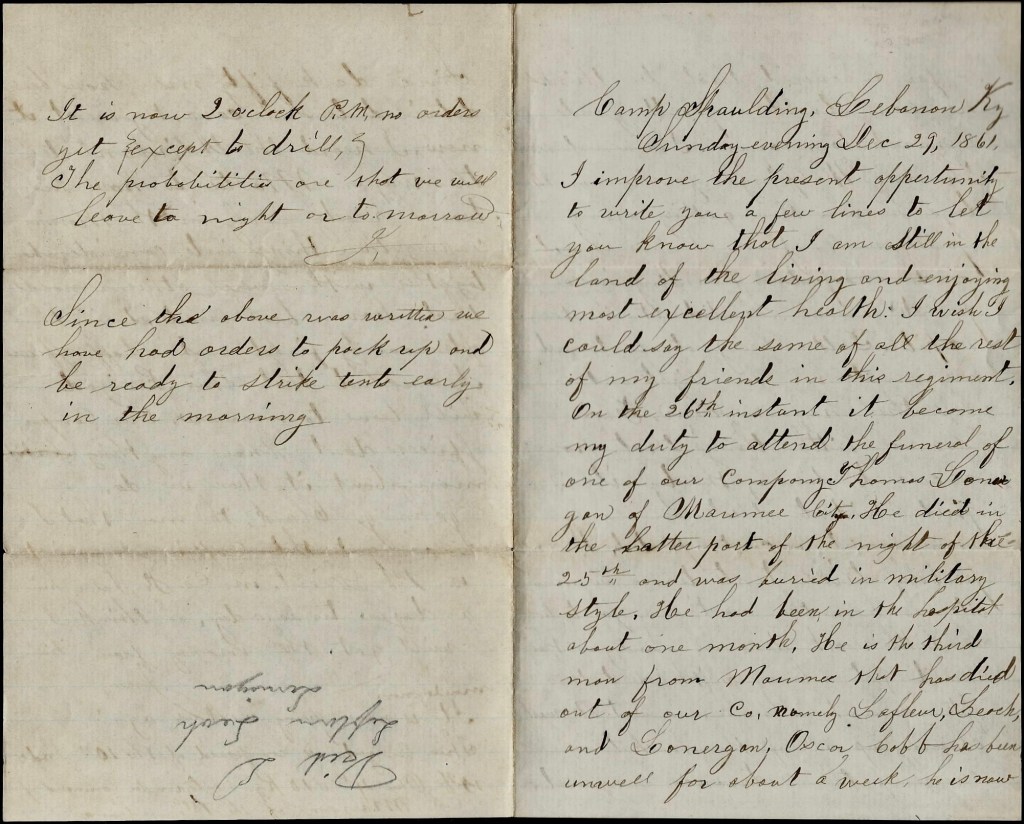 It is now 2 oclock P.M, no orders
yet {except to drill,}
The probobilities are that we will
leave to night or to morrow.
Since the above was written we
have had orders to pack up and
be ready to strike tents early
in the morning
Lernigan
Leflern Leach
Camp Spaulding, Lebanon Ky
Sunday evening Dec 29, 1861.
I improve the present oppertunity
to write you a few lines to let
you know that I am still in the
land of the living and enjoying
most excellent health: I wish I
could say the same of all the rest
of my friends in this regiment.
On the 26th instant it became
my duty to attend the funeral of
one of our Company Thomas Loner
gan of Maumee City. He died in
the Latter part of the night of the
25th and was buried in military
style. He had been in the hospital
about one month. He is the third
man from Maumee that has died
out of our Co, namely Lafleur, Leach,
and Lonergan, Oscar Cobb has been
unwell for about a week, he is now